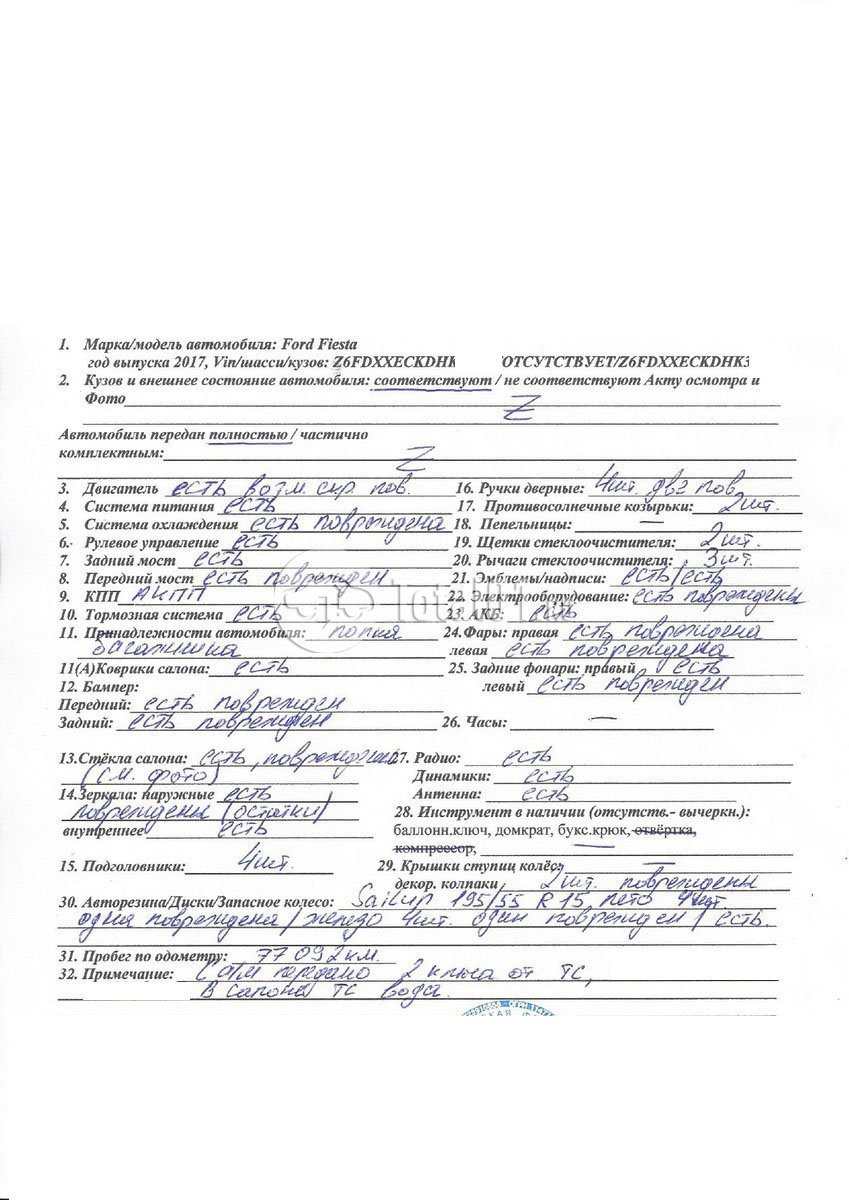 1. Марка/модель автомобиля: Ford Fiesta
год выпуска 2017, Vin/шасси/кузов: Z6FDXXECKDHK /ОТСУТСТВУЕТ/Z6FDXXECKDHK3
2. Кузов и внешнее состояние автомобиля: соответствуют / не соответствуют Акту осмотра и
Фото Z
Автомобиль передан полностью / частично
комплектным: Z
3. Двигатель есть возм. скр. пов. 16. Ручки дверные: 4шт. две пов.
4. Система питания есть 17. Противосолнечные козырьки: 2шт.
5. Система охлаждения есть повреждена 18. Пепельницы: —
6. Рулевое управление есть 19. Щетки стеклоочистителя: 2шт.
7. Задний мост есть 20. Рычаги стеклоочистителя: 3шт.
8. Передний мост есть поврежден 21. Эмблемы/надписи: есть/есть
9. КПП АКПП 22. Электрооборудование: есть повреждены
10. Тормозная система есть 23. АКБ: есть
11. Принадлежности автомобиля: полка 24. Фары: правая есть повреждена
багажника левая есть повреждена
11(А)Коврики салона: есть 25. Задние фонари: правый есть
12. Бампер: левый есть поврежден
Передний: есть поврежден
Задний: есть поврежден 26. Часы: —
13.Стёкла салона: есть, повреждены 27. Радио: есть
(см. фото) Динамики: есть
14.Зеркала: наружные есть Антенна: есть
повреждены (остатки) 28. Инструмент в наличии (отсутств.- вычеркн.):
внутреннее есть баллонн.ключ, домкрат, букс.крюк, отвёртка,
компрессор,
15. Подголовники: 4шт. 29. Крышки ступиц колёс: —
декор. колпаки 2шт. повреждены
30. Авторезина/Диски/Запасное колесо: Sailun 195/55 R 15, лето 4шт
одна повреждена / железо 4шт. один поврежден / есть.
31. Пробег по одометру: 77 092км.
32. Примечание: передано 2 ключа от ТС,
В салоне ТС вода.